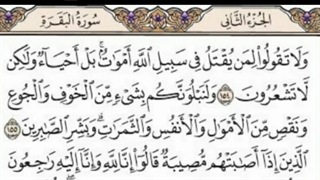 الجزء الثاني سورة البقرة
وَلَا تَقُولُوا۟ لِمَن يُقْتَلُ فِى سَبِيلِ ٱللَّهِ أَمْوَٰتٌۢ ۚ بَلْ أَحْيَآءٌ وَلَٰكِن
لَّا تَشْعُرُونَ ١٥٤ وَلَنَبْلُوَنَّكُم بِشَىْءٍ مِّنَ ٱلْخَوْفِ وَٱلْجُوعِ
وَنَقْصٍ مِّنَ ٱلْأَمْوَٰلِ وَٱلْأَنفُسِ وَٱلثَّمَرَٰتِ ۗ وَبَشِّرِ ٱلصَّٰبِرِينَ ١٥٥
ٱلَّذِينَ إِذَآ أَصَٰبَتْهُم مُّصِيبَةٌ قَالُوٓا۟ إِنَّا لِلَّهِ وَإِنَّآ إِلَيْهِ رَٰجِعُونَ